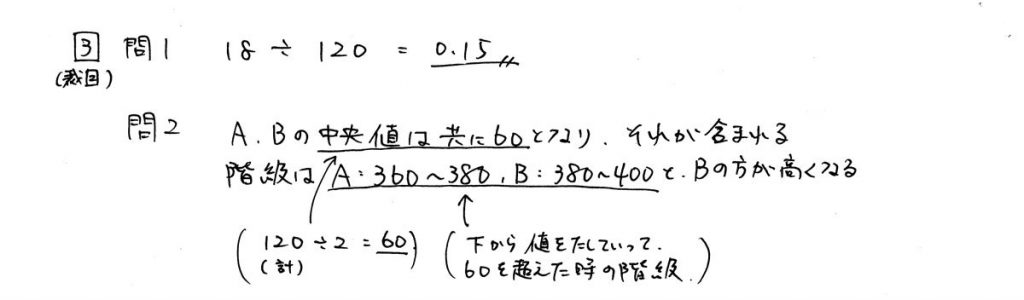 3 問1 18 ÷ 120 = 0.15
(裁目)
問2 A.Bの中央値は共に60となり、それが含まれる
階級は A:360〜380, B:380〜400と、Bの方が高くなる
(120÷2=60) (下から値をたしていって、
(計) 60を超えた時の階級.)